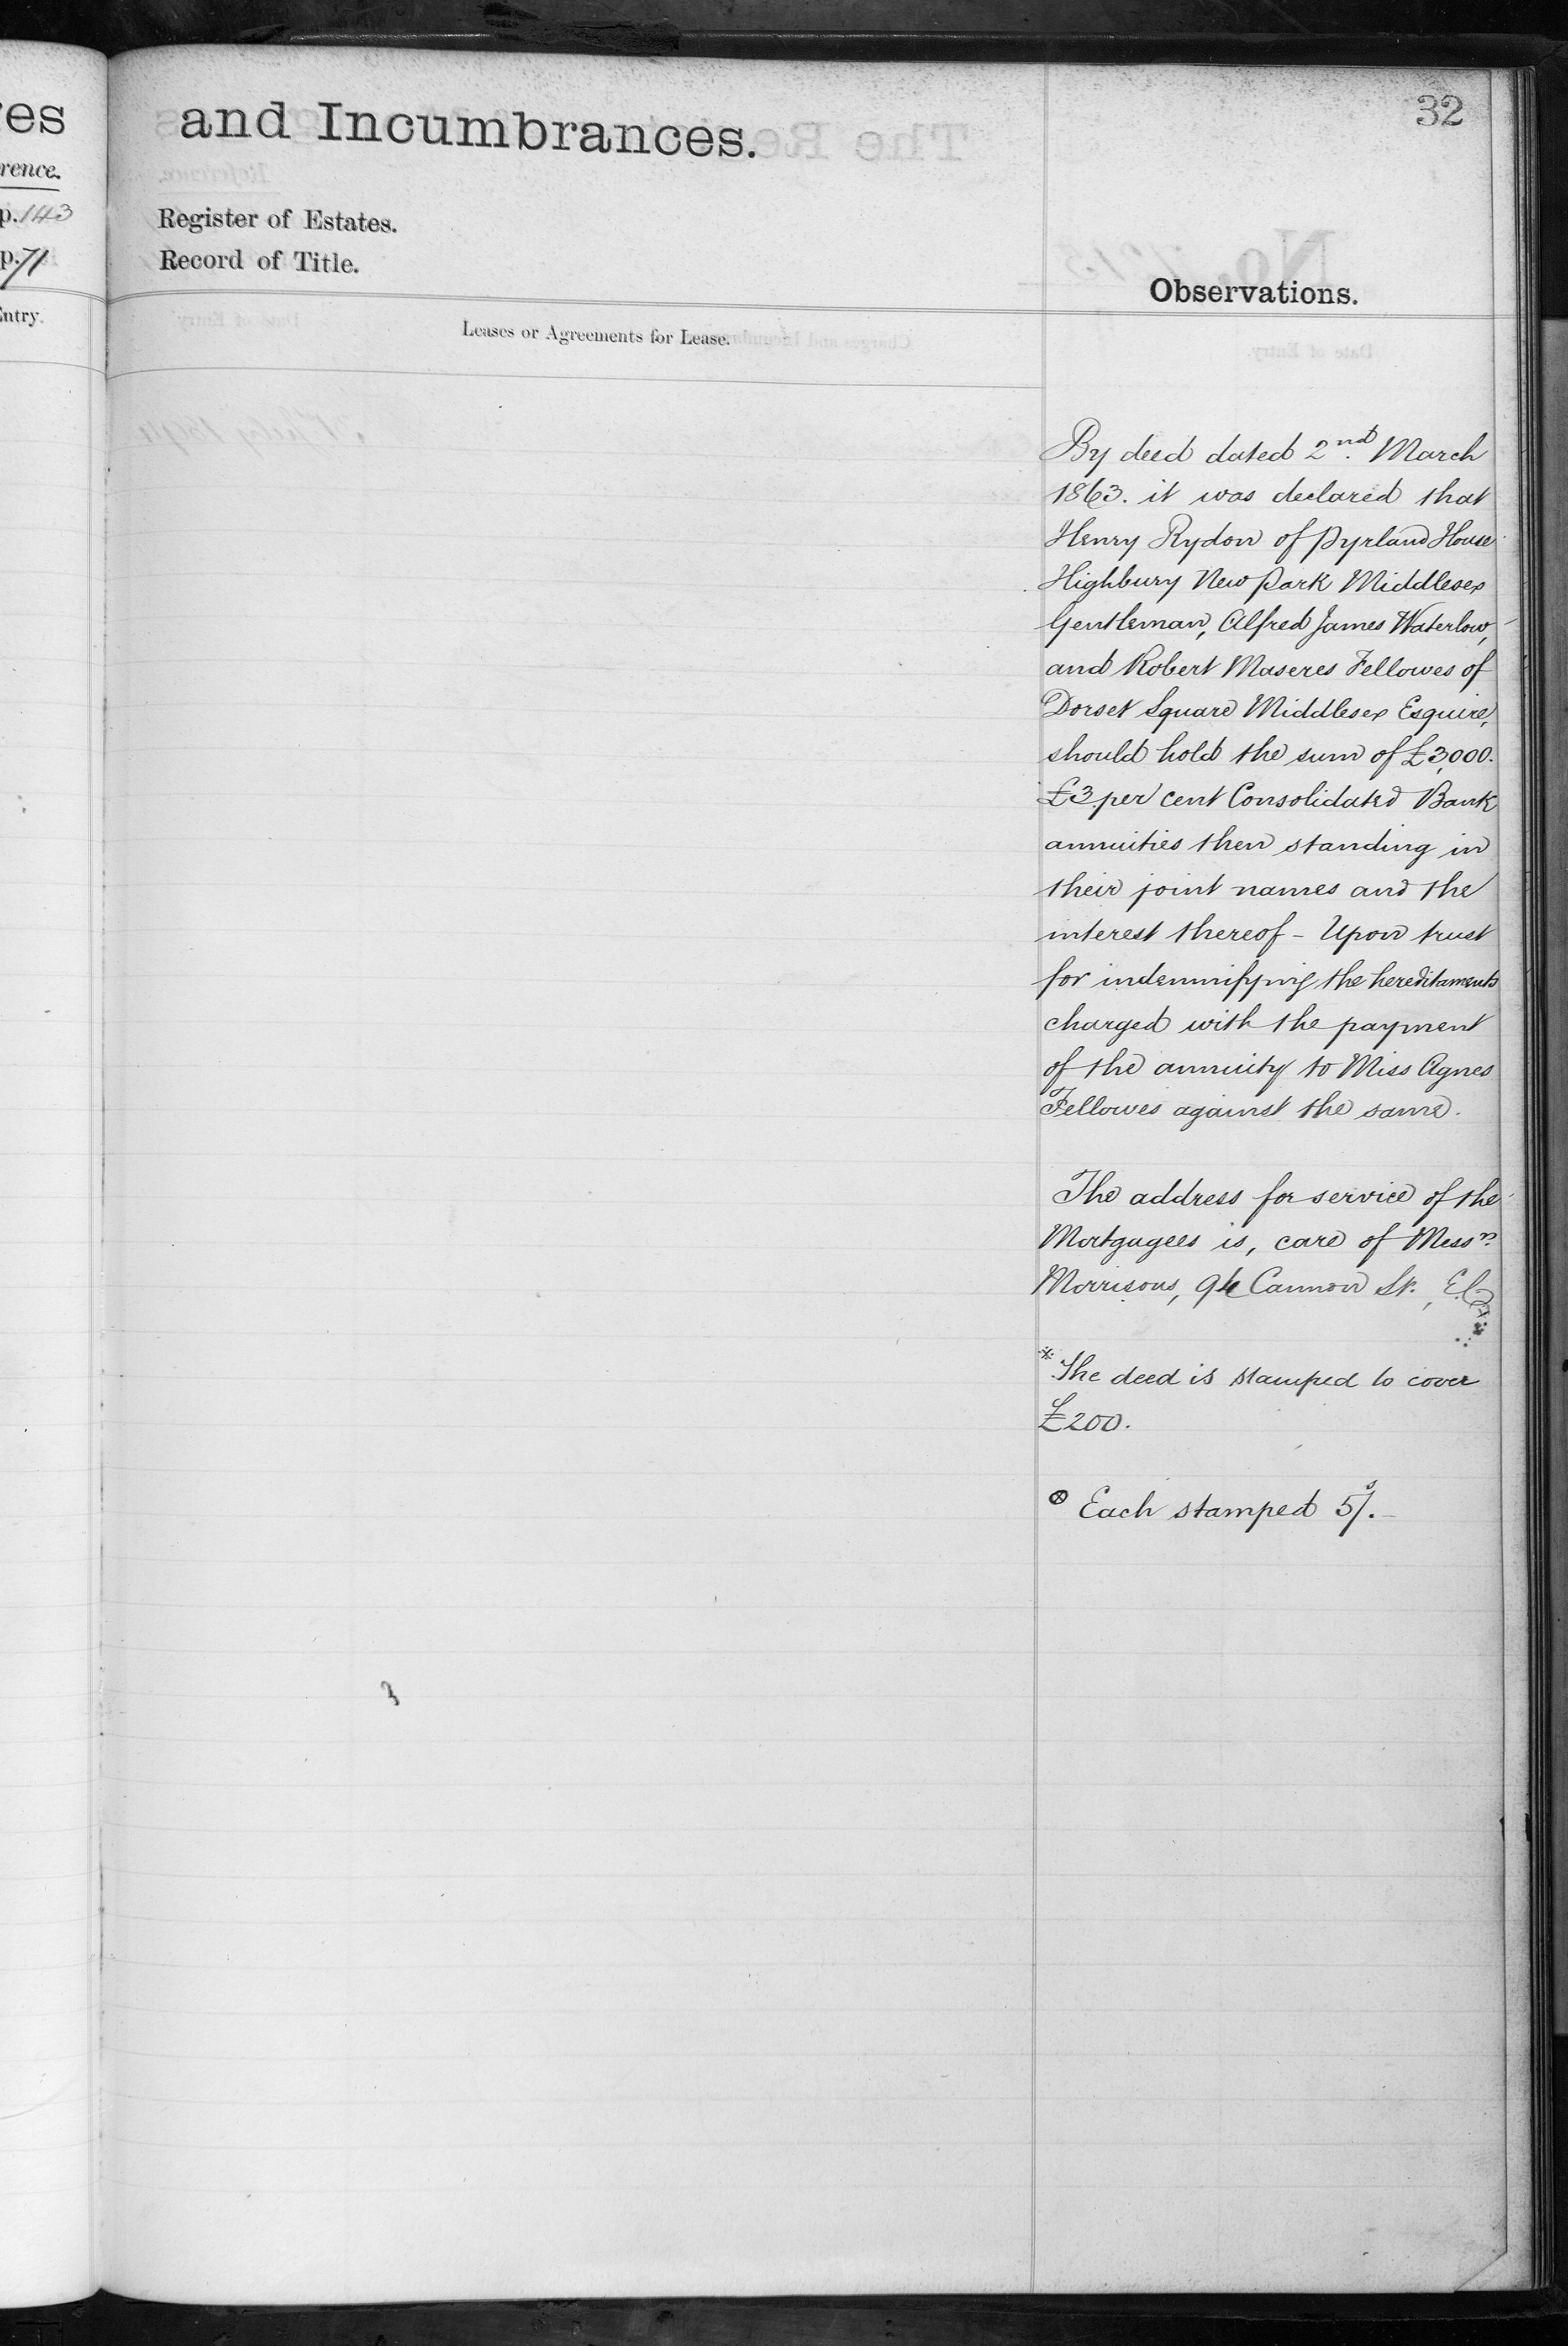 es
rence.
p. 143
p. 71
Entry.
and Incumbrances.
32
Register of Estates.
Record of Title.
Observations.
Leases or Agreements for Lease.
By deed dated 2nd. March
1863. it was declared that
Henry Rydon of Pyrland House
Highbury New Park Middlesex
Gentleman, Alfred James Waterlow,
and Robert Maseres Fellowes of
Dorset Square Middlesex Esquire,
should hold the sum of £3,000.
£3 per cent Consolidated Bank
annuities then standing in
their joint names and the
interest thereof - Upon trust
for indemnifying the hereditaments
charged with the payment
of the annuity to Miss Agnes
Fellowes against the same.
The address for service of the
Mortgagees is, care of Messrs.
Morrisons, Cannon St., E.C.
* The deed is stamped to cover
£200.
⊗ Each stamped 5/s.-